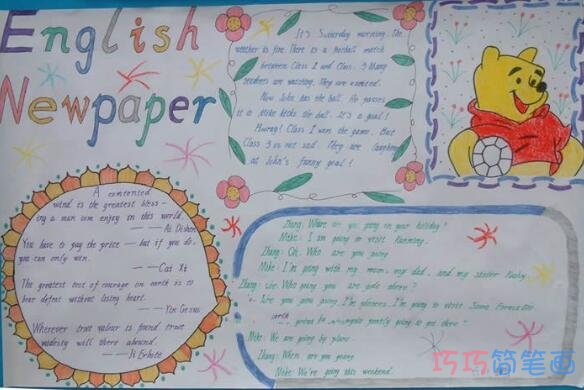 English
Newpaper
It's Saterday morning. The
weather is fine. There is a football match
between Class 1 and Class 3. Many
teachers are watching. They are excited.
Now John has the ball. He passes
it to Mike kicks the ball. It's a goal!
Hurray! Class 1 won the game. But
Class 3 is not sad. They are laughing
at John's funny goal!
A contented
mind is the greatest bless-
ing a man can enjoy in this world.
You have to pay the price — but if you do.
you can only win.
The greatest test of courage on earth is to
bear defeat without losing heart.
Wherever true valour is found true
modesty will there abound.
Zhang: Where are you going on your holiday?
Mike: I am going to visit Kunming.
Zhang: Oh. Who are you going
Mike: I'm going with my mom, my dad, and my sister
Zhang: Who going you are
I'm going to visit Some
Mike: We are going by plane
Zhang: When are you going
Mike: We're going this weekend.
巧巧简笔画